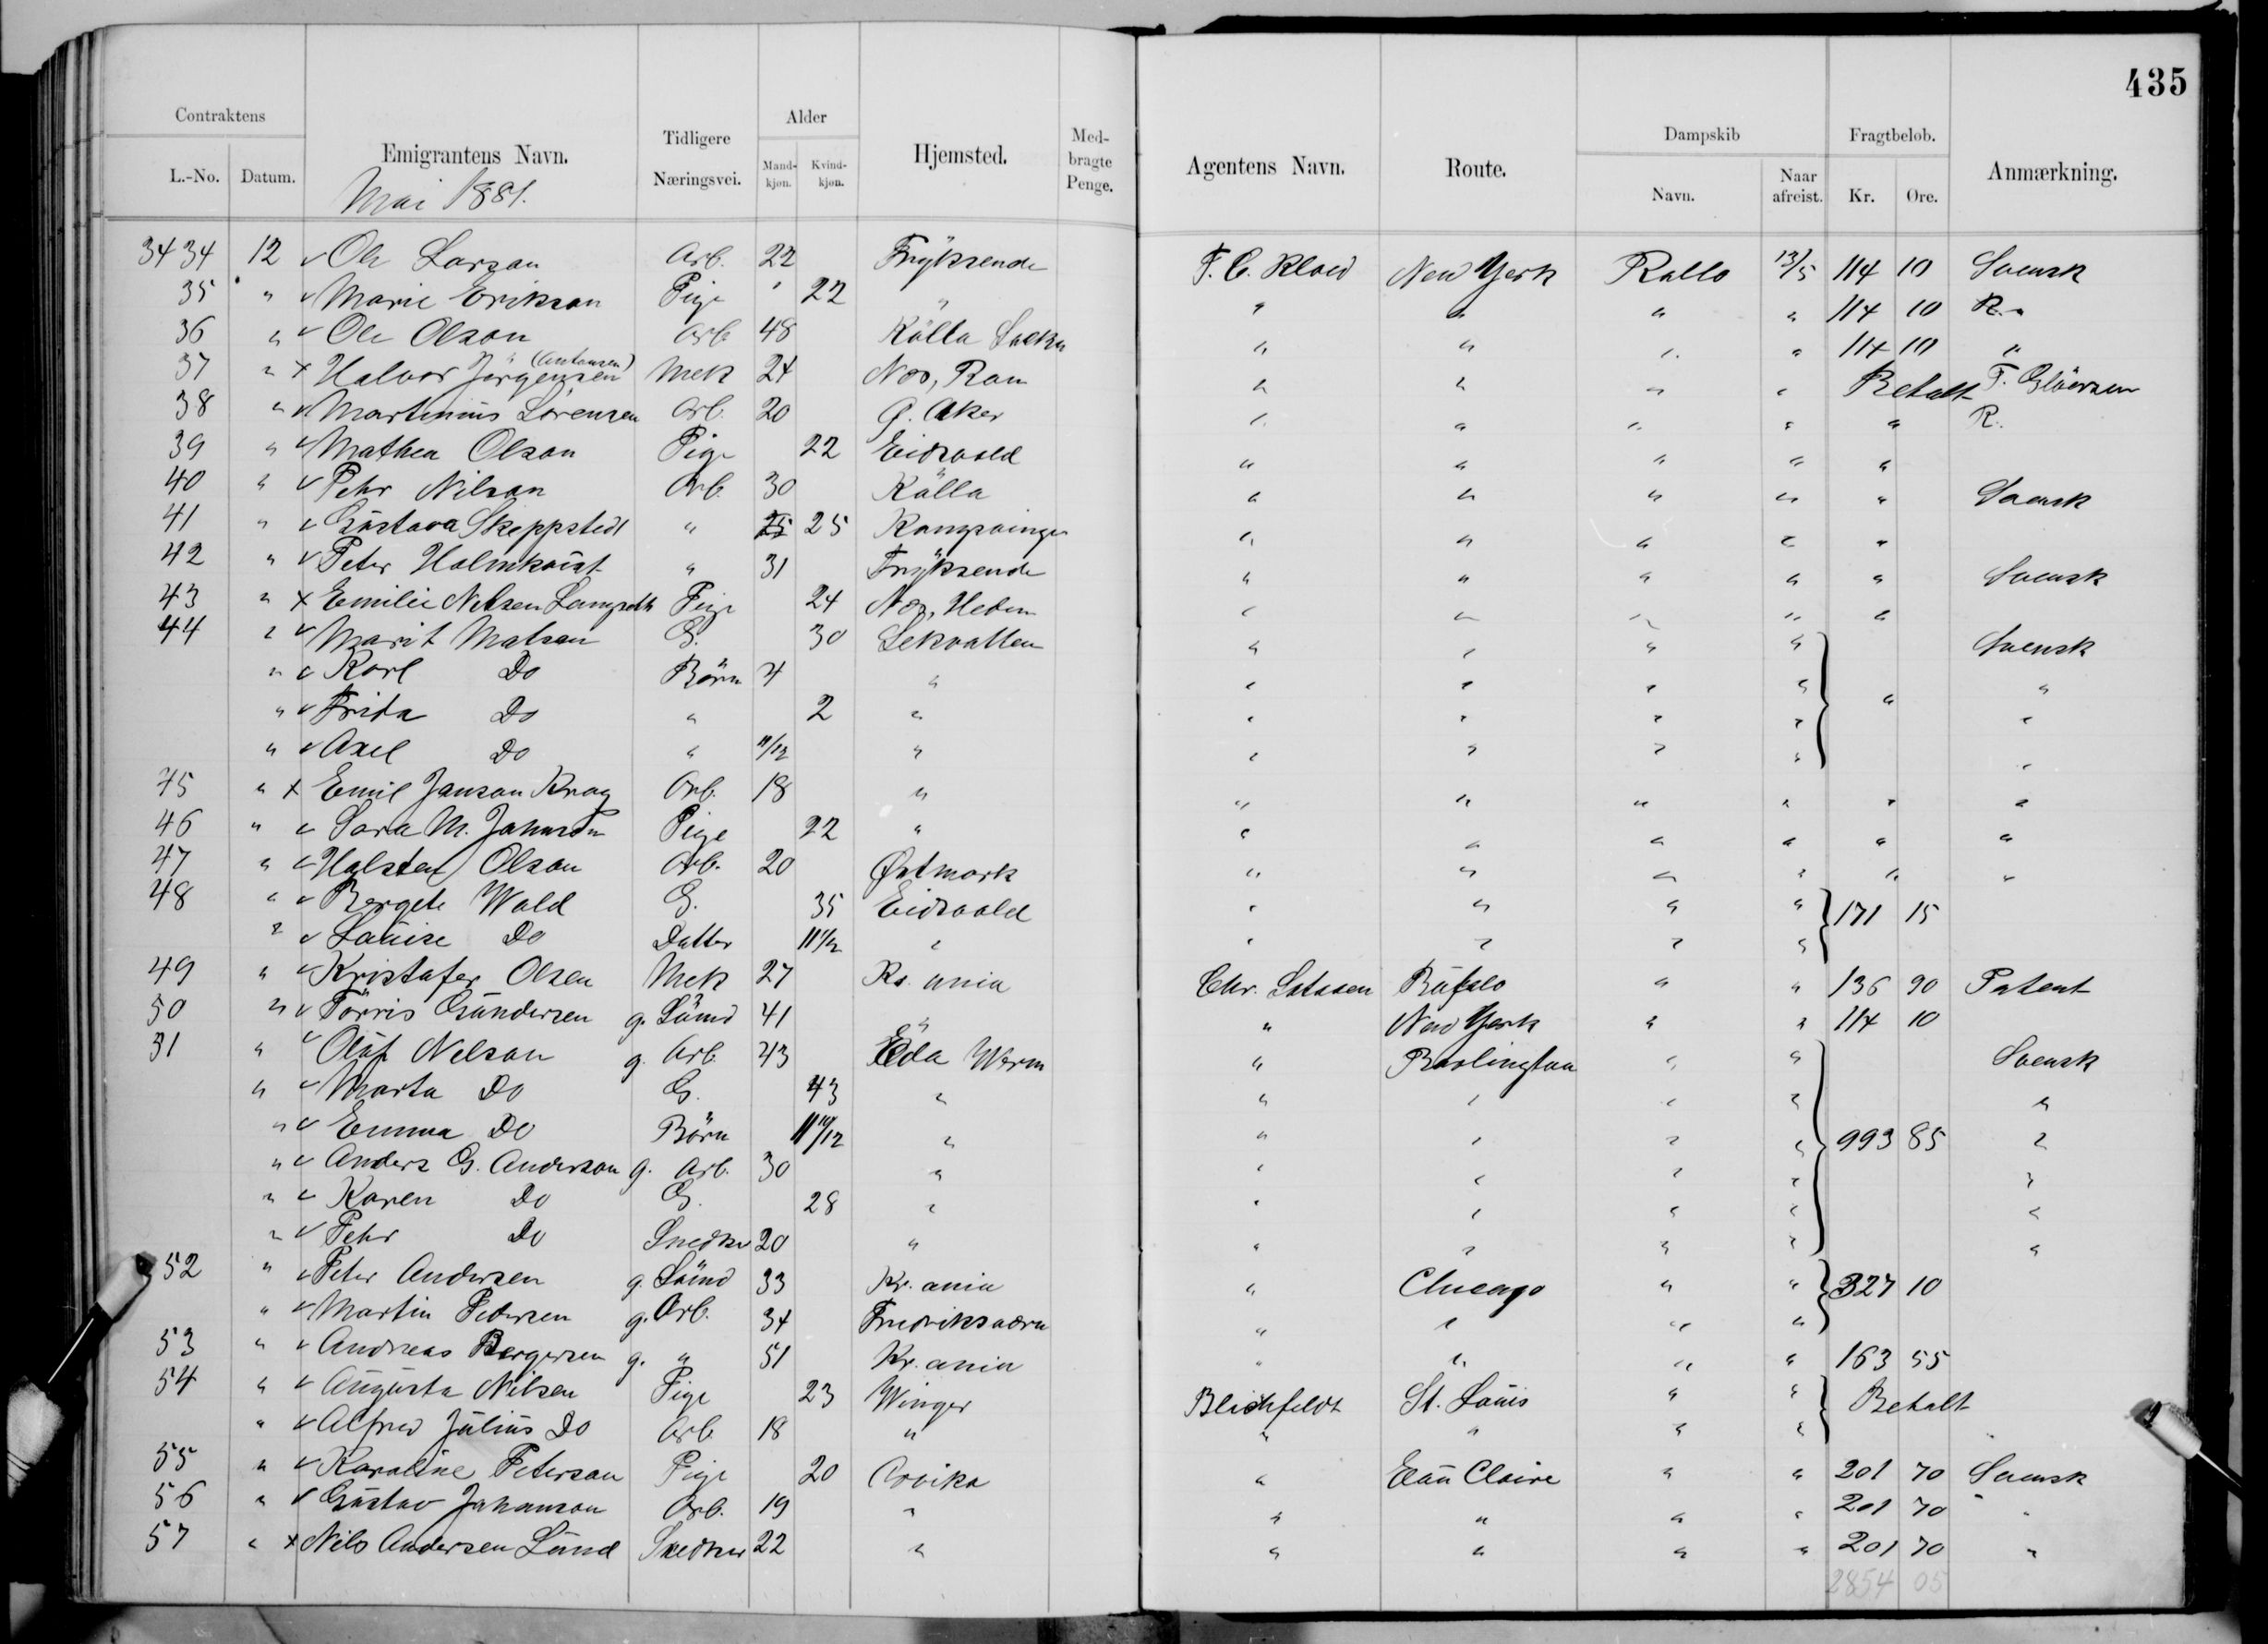 435
Contraktens Emigrantens Navn. Tidligere Næringsvei. Alder Hjemsted. Med-bragte Penge. Agentens Navn. Route. Dampskib Fragtbeløb. Anmærkning.
L.-No. Datum. Mand-kjøn. Kvind-kjøn. Navn. Naar afreist. Kr. Øre.
Mai 1881.
3434 12 Ole Larson Arb. 22 Fryksende New York Rollo 13/5 114 10 Svensk
35 " Marie Erikson Pige " 22 " " " " " 114 10 R. "
36 " Ole Olson Arb 48 Kölla " " " " 114 10 "
37 " x Halvor Jörgensen (Antonsen) Mek 24 Næs, Rom " " " " Betalt
38 " Martinius Lörensen Arb. 20 Ø. Aker " " " " " R.
39 " Mathea Olson Pige 22 Eidsvold " " " " "
40 " Pehr Nilson Arb. 30 Kölla " " " " " Svensk
41 " Gustava Skeppstedt " 25 25 Kongsvinger " " " " "
42 " Peter Holmkvist " 31 Fryksende " " " " " Svensk
43 " x Emilie Nilsen Langseth Pige 24 Næs, Hedm " " " " "
44 " Marit Matson G. 30 Lekvatten " " " " Svensk
" Karl Do Börn 4 " " " " " " "
" Frida Do " 2 " " " " " "
" Axel Do " 11/12 " " " " " "
45 " x Emil Janson Krog Arb. 18 " " " " " " "
46 " Sara M. Johnson Pige 22 " " " " " " "
47 " Halsten Olson Arb. 20 Østmark " " " " " "
48 " Bergete Wold G. 35 Eidsvold " " " " 171 15
" Louise Do Datter 11 1/2 " " " " "
49 " Kristofer Olsen Mek 27 Kr. ania Chr. Bufalo " " 136 90 Patent
50 " Törris Gundersen g. Sömd 41 " " New York " " 114 10
51 " Olof Nelson g. Arb. 43 Eda Werm " Burlington " " Svensk
" Marta Do G. 43 " " " " " "
" Emma Do Börn 11 11/12 " " " " " 993 85 "
" Anders G. Anderson g. Arb. 30 " " " " " "
" Karen Do G. 28 " " " " " "
" Pehr Do Snedker 20 " " " " " "
52 " Peter Andersen g. Sömd 33 Kr. ania " Chicago " " 327 10
" Martin Pedersen g. Arb. 34 Fredriksværn " " " "
53 " Andreas Bergersen g. " 51 Kr. ania " " " " 163 55
54 " Augusta Nilsen Pige 23 Winger Blichfeldt St. Louis " " Betalt
" Alfred Julius Do Arb 18 " " " " "
55 " Karoline Peterson Pige 20 Arvika " Eau Claire " " 201 70 Svensk
56 " Gustav Johanson Arb. 19 " " " " " 201 70 "
57 " x Nils Andersen Lund Snedker 22 " " " " " 201 70 "
2854 05